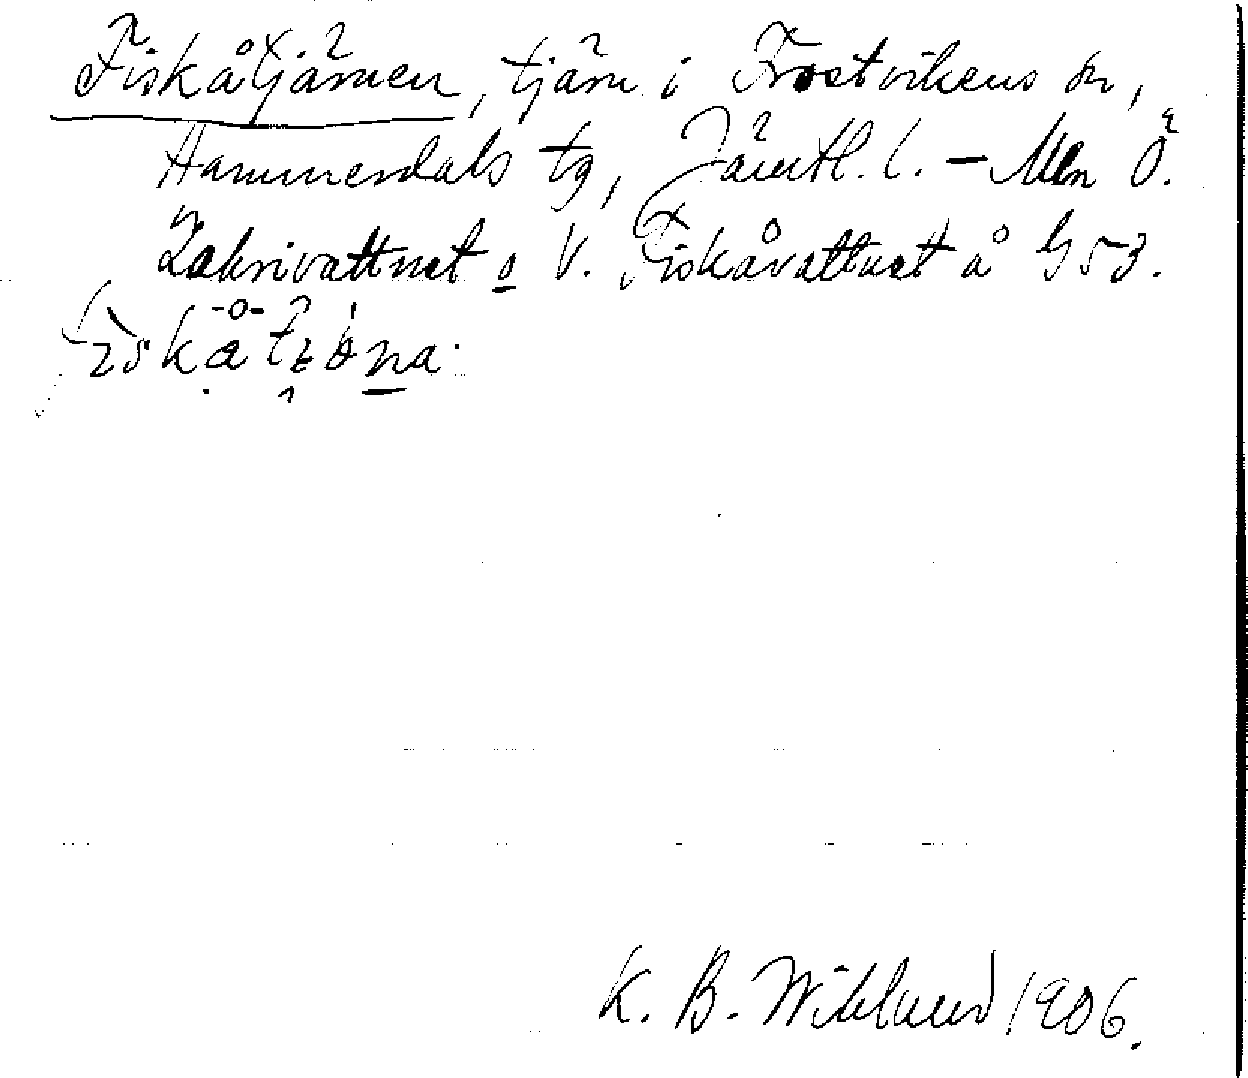 Fiskåtjärnen, tjärn i Frostvikens sn,
Hammerdals tg, Jämtl. l. – Mln Ö.
Zakrivattnet o V. Fiskåvattnet å G 53.
K. B. Wiklund 1906.